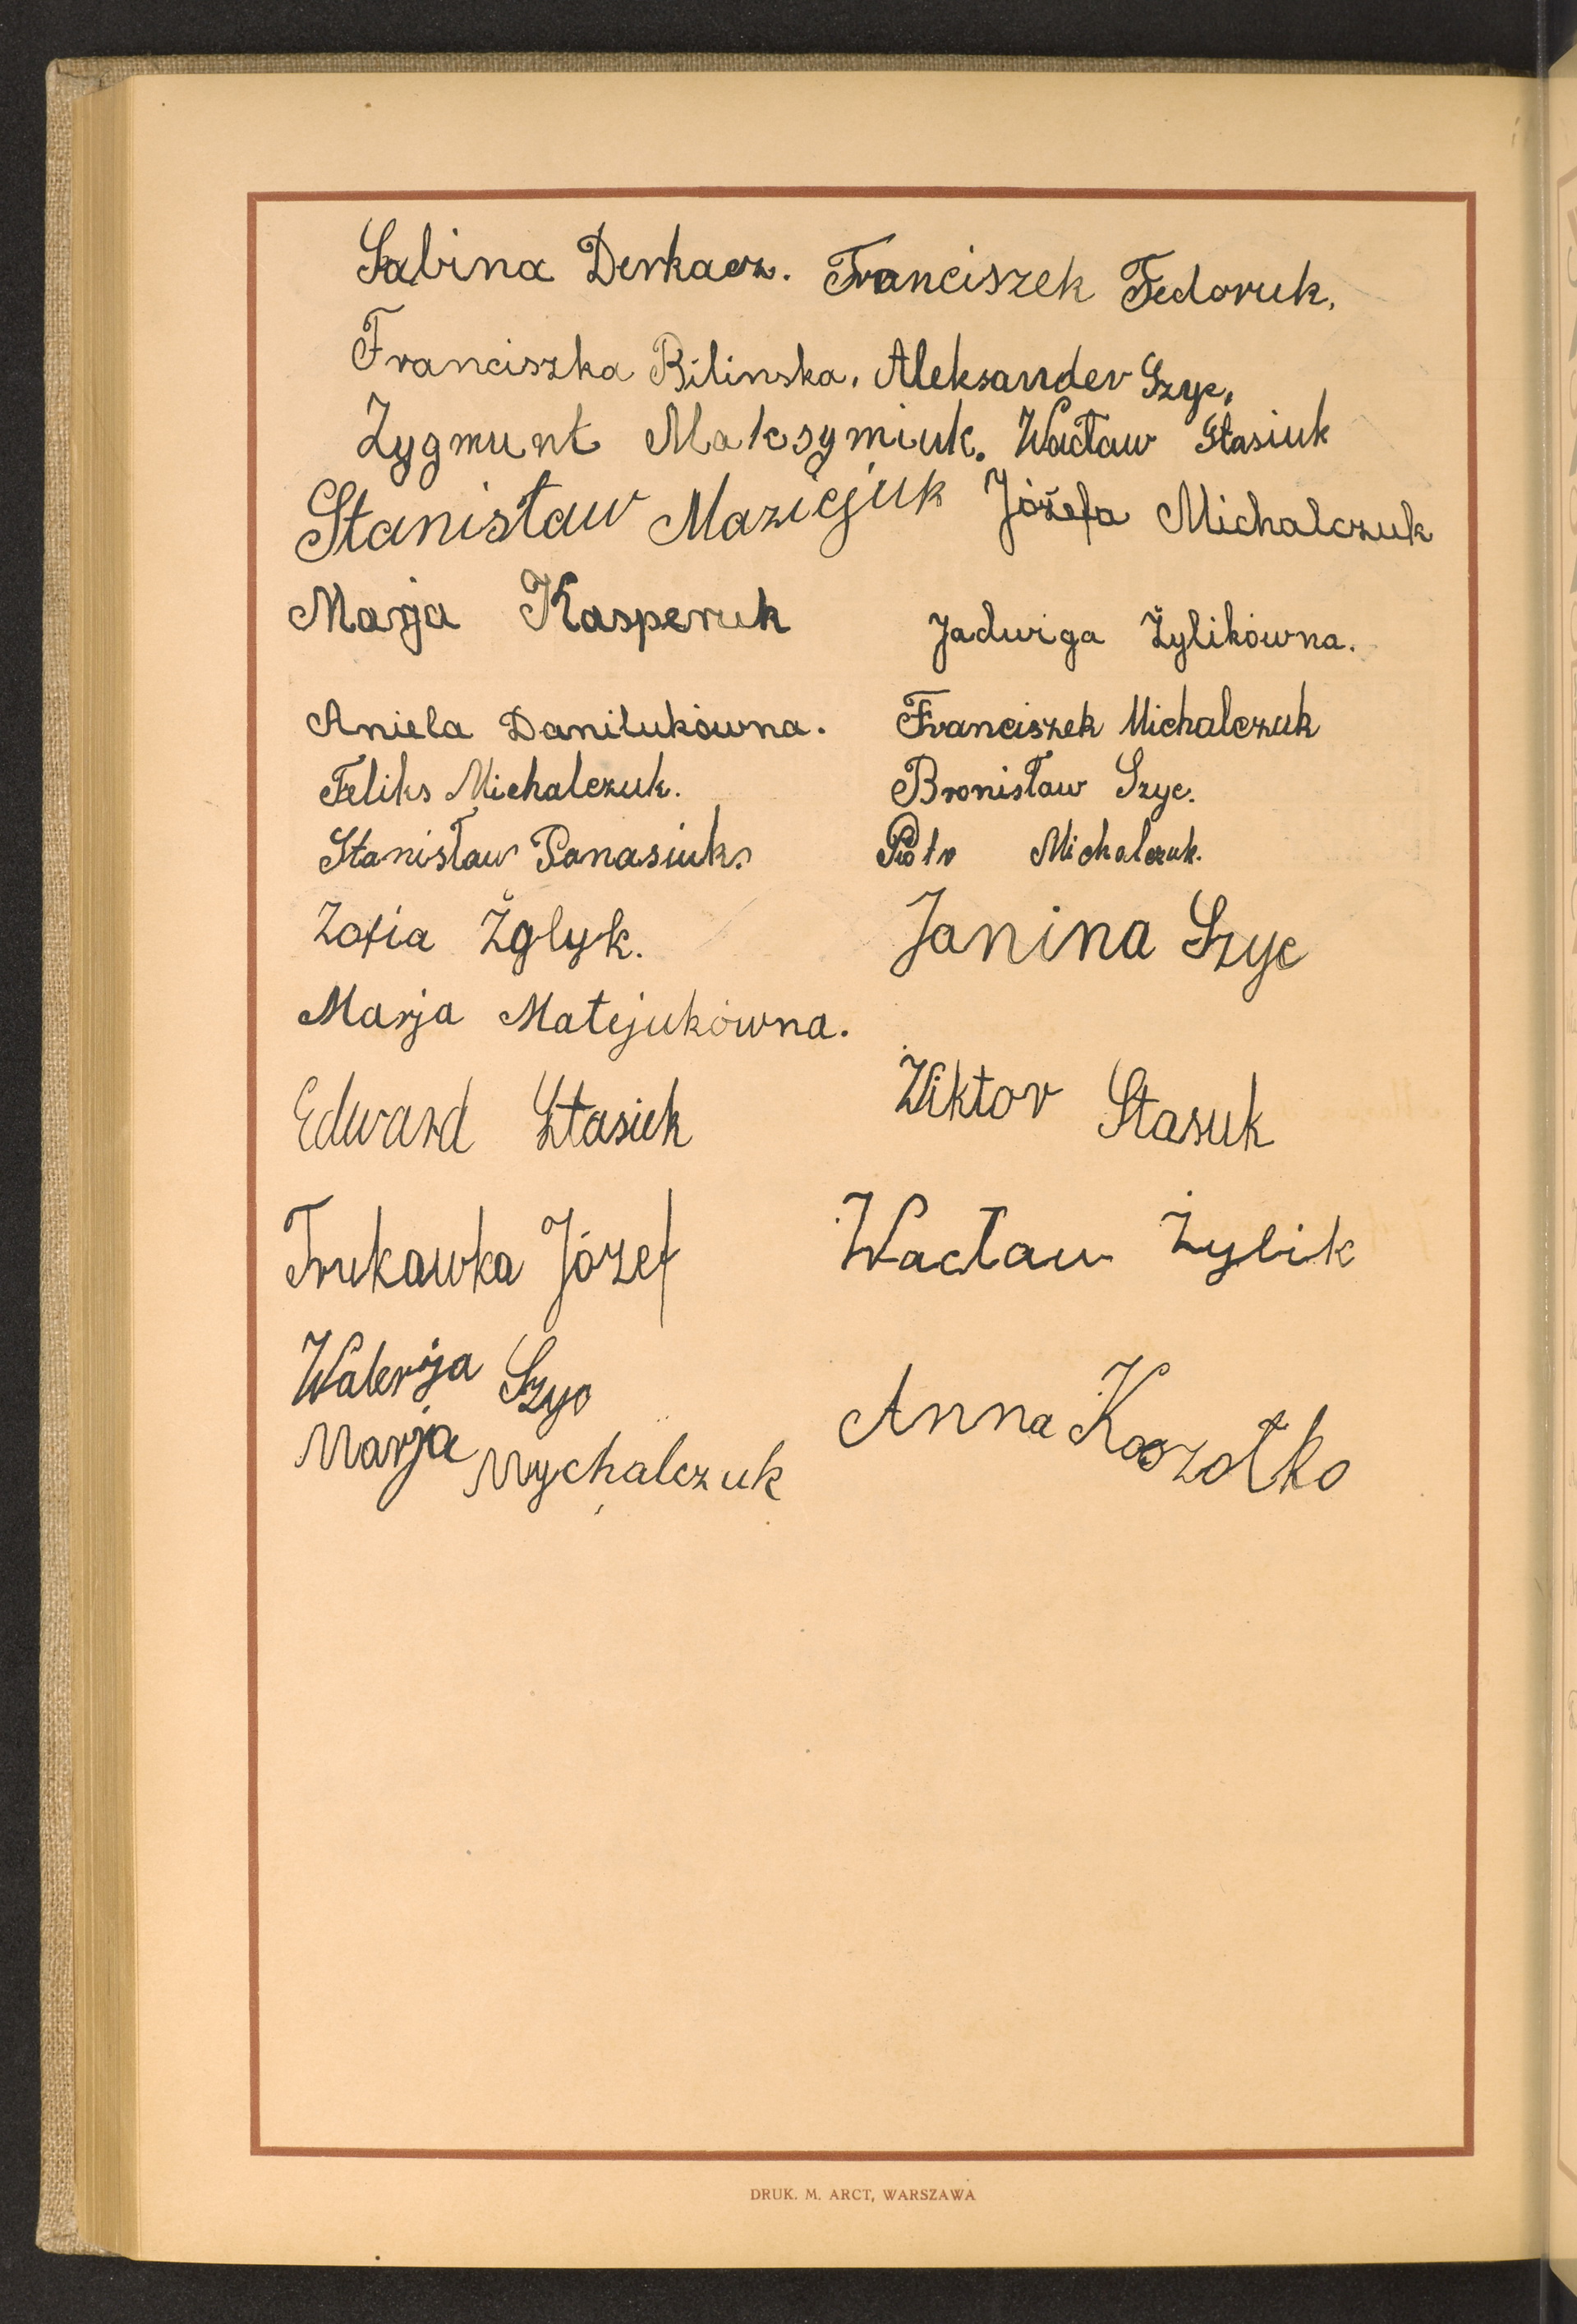 Sabina Derkacz. Franciszek Fedoruk.
Franciszka Bilinska. Aleksander Szyc.
Zygmunt Maksymiuk. Wacław Stasiuk
Stanisław Maziejuk Józefa Michalczuk
Marja Kasperuk Jadwiga Żylikówna.
Aniela Danilukówna. Franciszek Michalczuk
Feliks Michalczuk. Bronisław Szyc.
Stanisław Panasiuk. Piotr Michalczuk.
Zofia Żglyk. Janina Szyc
Marja Matejukówna.
Edward Stasiuk Wiktor Stasuk
Trukawka Józef Wacław Żylik
Walerja Szyc
Marja Mychalczuk Anna Koszołko
DRUK. M. ARCT, WARSZAWA